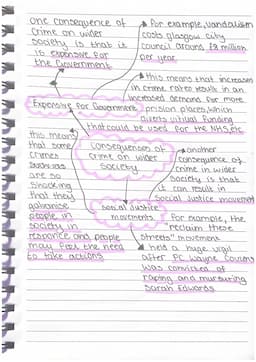 one consequence of
crime on wider
society is that it
is expensive for
the Government
For example, vandalism
costs glasgow city
council around
million
per year.
this means that increase
in crime rates result in an
increased demand for more
prision places, which
diverts virtual funding
that could be used for the NHS etc
Expensive for Government
Consequences of
crime on wider
society
another
consequence of
crime in wider
society is that
it can result in
social justice movement
this means
that some
crimes
such as
are so
shocking
that they
galvanise
people in
society in
responce and people
may feel the need
to take actions
social Justice
movements
For example, the
reclaim these
streets" movement
held a huge vigil
after PC Wayne Couzens
was convicted of
raping and
Sarah Edwards